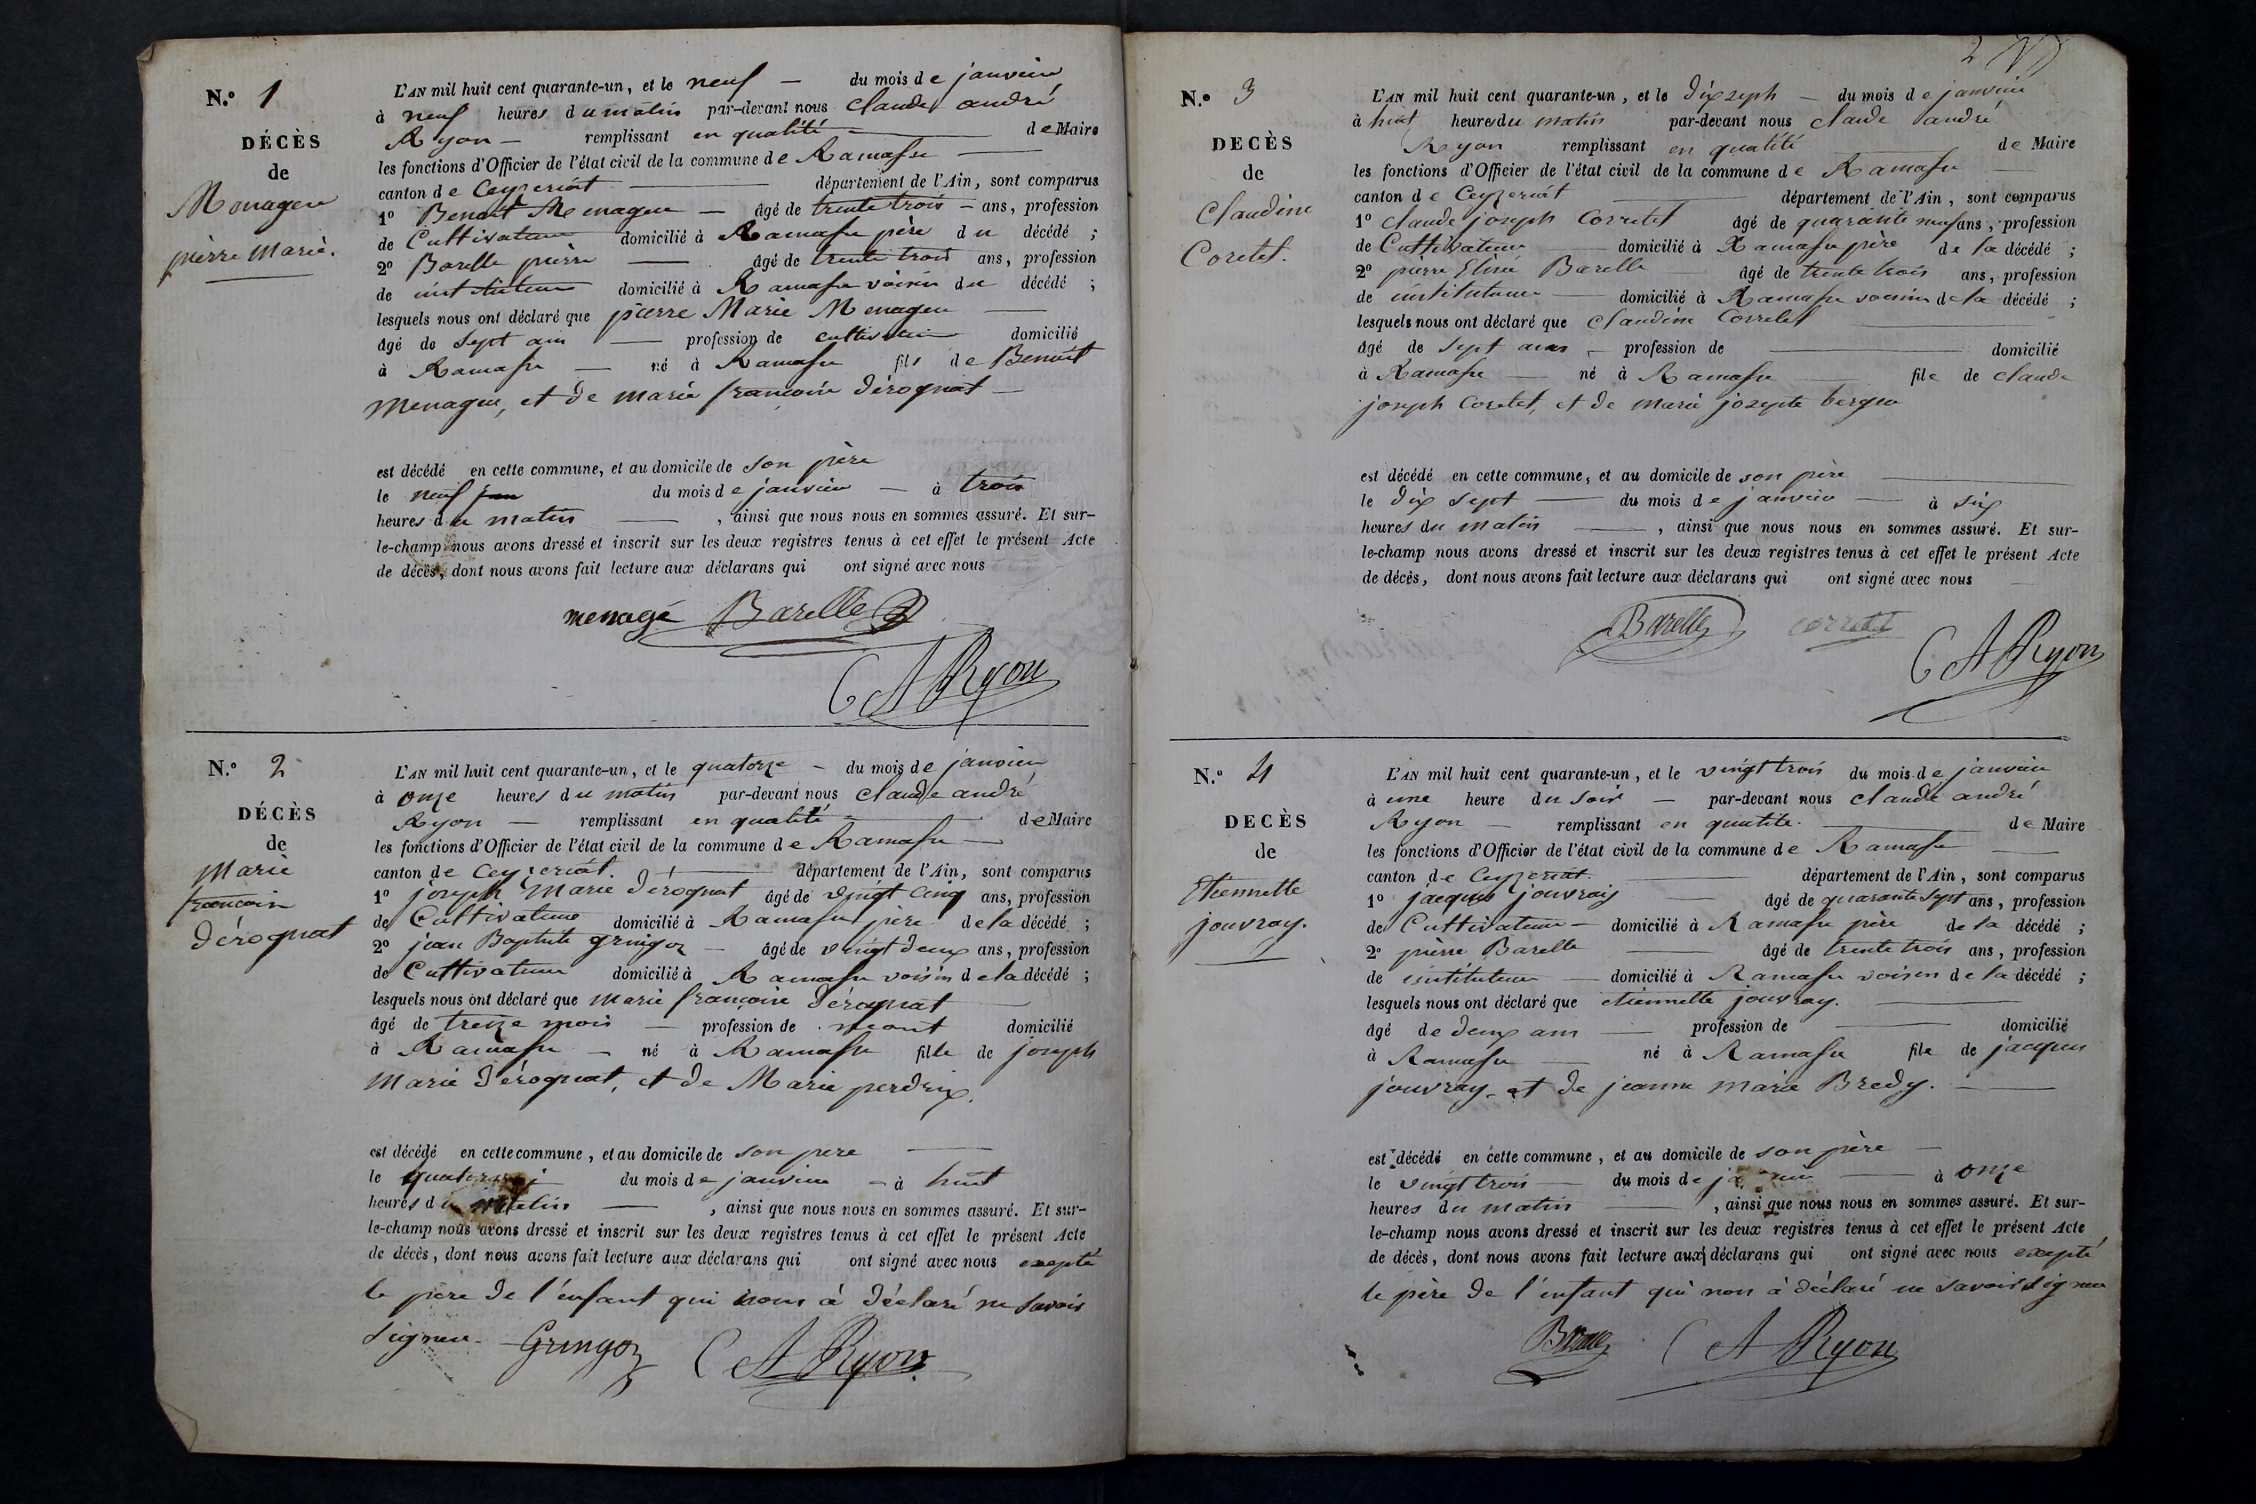 N.o 1
DÉCÈS
de
Menager
pierre Marie.
L'AN mil huit cent quarante-un, et le neuf — du mois de janvier
à neuf heures du matin par-devant nous claude andré
Ryon — remplissant en qualité — de Maire
les fonctions d'Officier de l'état civil de la commune de Ramasse —
canton de Ceyzeriat — département de l'Ain, sont comparus
1o Benoit Menager — âgé de trente trois — ans, profession
de Cultivateur domicilié à Ramasse père du décédé ;
2o Barelle pierre — âgé de trente trois ans, profession
de instituteur domicilié à Ramasse voisin du décédé ;
lesquels nous ont déclaré que pierre Marie Menager —
âgé de sept ans — profession de cultivateur domicilié
à Ramasse — né à Ramasse fils de Benoit
Menager, et de marie françoise dérognat —
est décédé en cette commune, et au domicile de son père
le neuf du mois de janvier — à trois
heures du matin —, ainsi que nous nous en sommes assuré. Et sur-
le-champ nous avons dressé et inscrit sur les deux registres tenus à cet effet le présent Acte
de décès, dont nous avons fait lecture aux déclarans qui ont signé avec nous
menagé Barelle
CA Ryon
N.o 2
DÉCÈS
de
Marie
francoise
Dérognat
L'AN mil huit cent quarante-un, et le quatorze — du mois de janvier
à onze heures du matin par-devant nous claude andré
Ryon — remplissant en qualité — de Maire
les fonctions d'Officier de l'état civil de la commune de Ramasse —
canton de Ceyzeriat. — département de l'Ain, sont comparus
1o joseph Marie dérognat âgé de vingt cinq ans, profession
de Cultivateur domicilié à Ramasse père de la décédé ;
2o jean Baptiste gringoz — âgé de vingt deux ans, profession
de Cultivateur domicilié à Ramasse voisin de la décédé ;
lesquels nous ont déclaré que marie françoise dérognat —
âgé de treize mois — profession de néant domicilié
à Ramasse — né à Ramasse fille de joseph
Marie dérognat, et de Marie perdrix.
est décédé en cette commune, et au domicile de son pere —
le quatorze du mois de janvier — à huit
heures du matin —, ainsi que nous nous en sommes assuré. Et sur-
le-champ nous avons dressé et inscrit sur les deux registres tenus à cet effet le présent Acte
de décès, dont nous avons fait lecture aux déclarans qui ont signé avec nous excepté
le père de l'enfant qui nous à déclaré ne savoir
signer. Gringoz CA Ryon
2
N.o 3
DECÈS
de
Claudine
Coretet.
L'AN mil huit cent quarante-un, et le dix seph — du mois de janvier
à huit heures du matin par-devant nous claude andré
Ryon remplissant en qualité — de Maire
les fonctions d'Officier de l'état civil de la commune de Ramasse —
canton de Ceyzeriat — département de l'Ain, sont comparus
1o claude joseph Corretet âgé de quarante neuf ans, profession
de Cultivateur — domicilié à Ramasse père de la décédé ;
2o pierre Barelle — âgé de trente trois ans, profession
de instituteur — domicilié à Ramasse voisin de la décédé ;
lesquels nous ont déclaré que claudine Corretet —
âgé de sept ans — profession de — domicilié
à Ramasse — né à Ramasse — fille de claude
joseph Coretet, et de marie jozepte berger
est décédé en cette commune, et au domicile de son père —
le dix sept — du mois de janvier — à six
heures du matin —, ainsi que nous nous en sommes assuré. Et sur-
le-champ nous avons dressé et inscrit sur les deux registres tenus à cet effet le présent Acte
de décès, dont nous avons fait lecture aux déclarans qui ont signé avec nous —
Barelle corretet
CA Ryon
N.o 4
DECÈS
de
Etiennette
jouvray.
L'AN mil huit cent quarante-un, et le vingt trois du mois de janvier
à une heure du soir — par-devant nous claude andré
Ryon — remplissant en qualité. — de Maire
les fonctions d'Officier de l'état civil de la commune de Ramasse —
canton de Ceyzeriat. — département de l'Ain, sont comparus
1o jacques jouvray — âgé de quarante sept ans, profession
de Cultivateur — domicilié à Ramasse père de la décédé ;
2o pierre Barelle — âgé de trente trois ans, profession
de instituteur — domicilié à Ramasse voisin de la décédé ;
lesquels nous ont déclaré que etiennette jouvray. —
âgé de deux ans — profession de — domicilié
à Ramasse — né à Ramasse fille de jacques
jouvray. et de jeanne marie Bredy. —
est décédé en cette commune, et au domicile de son père —
le vingt trois — du mois de janvier — à onze
heures du matin —, ainsi que nous nous en sommes assuré. Et sur-
le-champ nous avons dressé et inscrit sur les deux registres tenus à cet effet le présent Acte
de décès, dont nous avons fait lecture aux déclarans qui ont signé avec nous excepté
le père de l'enfant qui nous à déclaré ne savoir signer
Barelle CA Ryon